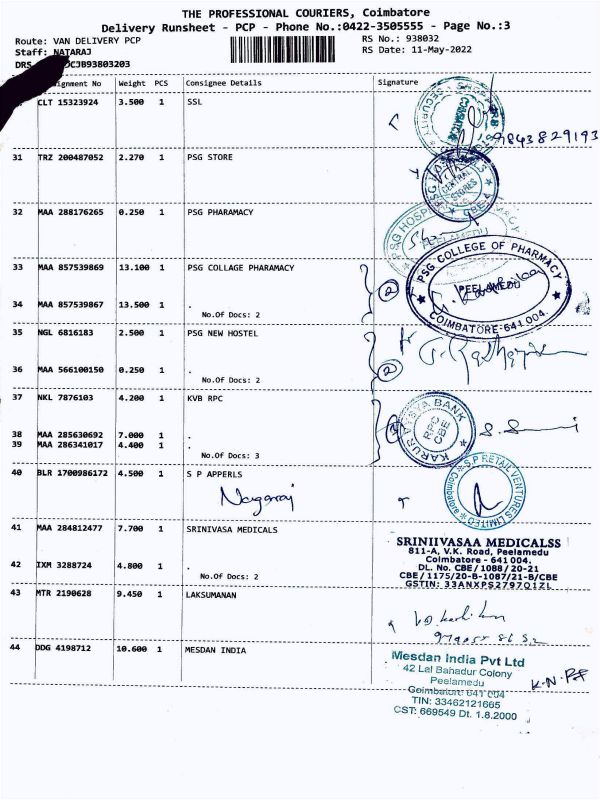 THE PROFESSIONAL COURIERS, Coimbatore
Delivery Runsheet - PCP - Phone No.:0422-3505555 - Page No.:3
Route: VAN DELIVERY PCP RS No.: 938032
Staff: NATARAJ RS Date: 11-May-2022
DRS CJB93803203
gnment No Weight PCS Consignee Details Signature
CLT 15323924 3.500 1 SSL
SECURITY COIMBATORE
9843829193
31 TRZ 200487052 2.270 1 PSG STORE
CENTRAL STORES
32 MAA 288176265 0.250 1 PSG PHARAMACY
PSG HOSPITALS PHARMACY
PEELAMEDU
33 MAA 857539869 13.100 1 PSG COLLAGE PHARAMACY
PSG COLLEGE OF PHARMACY
PEELAMEDU
COIMBATORE-641 004.
2
34 MAA 857539867 13.500 1 .
No.Of Docs: 2
35 NGL 6816183 2.500 1 PSG NEW HOSTEL
36 MAA 566100150 0.250 1 .
2
No.Of Docs: 2
37 NKL 7876103 4.200 1 KVB RPC
KARUR VYSYA BANK
RPC
CBE
38 MAA 285630692 7.000 1 .
39 MAA 286341017 4.400 1 .
No.Of Docs: 3
40 BLR 1700986172 4.500 1 S P APPERLS
Nagaraj
S.P RETAIL VENTURES LIMITED
Coimbatore
41 MAA 284812477 7.700 1 SRINIVASA MEDICALS
SRINIIVASAA MEDICALSS
811-A, V.K. Road, Peelamedu
Coimbatore - 641 004.
DL. No. CBE / 1088 / 20-21
CBE / 1175/20-B-1087/21-B/CBE
GSTIN: 33ANXPS2797Q1ZL
42 IXM 3288724 4.800 1 .
No.Of Docs: 2
43 MTR 2190628 9.450 1 LAKSUMANAN
44 DDG 4198712 10.600 1 MESDAN INDIA
Mesdan India Pvt Ltd
42 Lal Bahadur Colony
Peelamedu
Coimbatore 641 004
TIN: 33462121665
CST: 669549 Dt. 1.8.2000